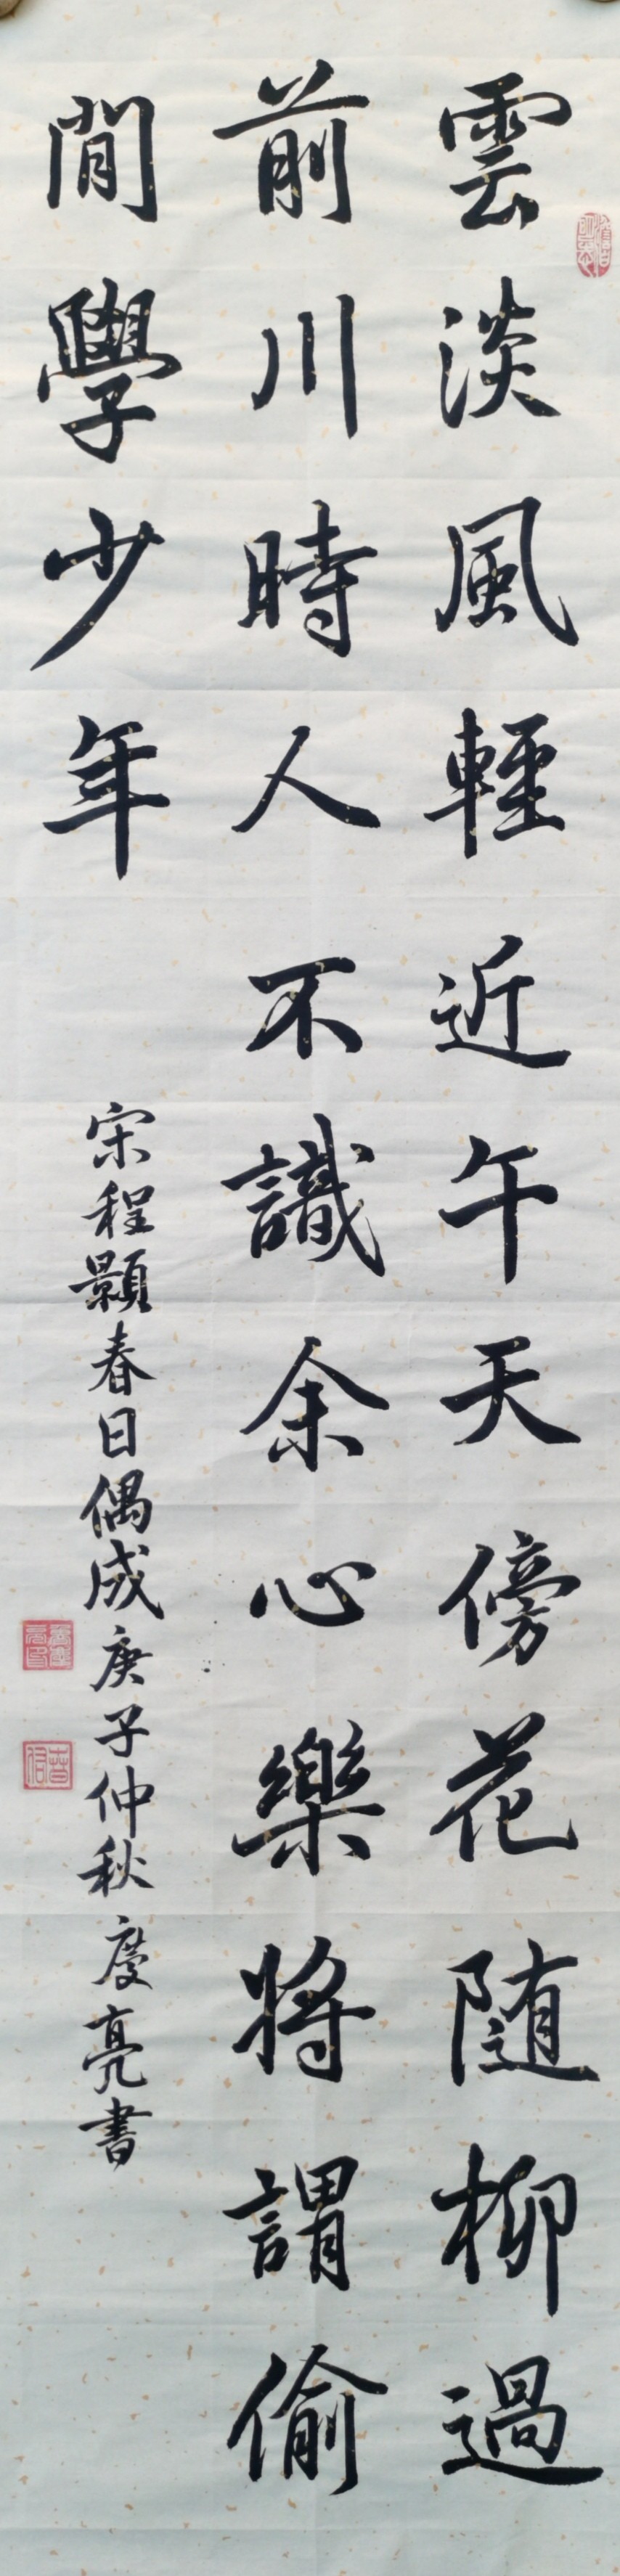 雲淡風輕近午天傍花随柳過
前川時人不識余心樂將謂偷
閒學少年
宋程顥春日偶成庚子仲秋慶亮書